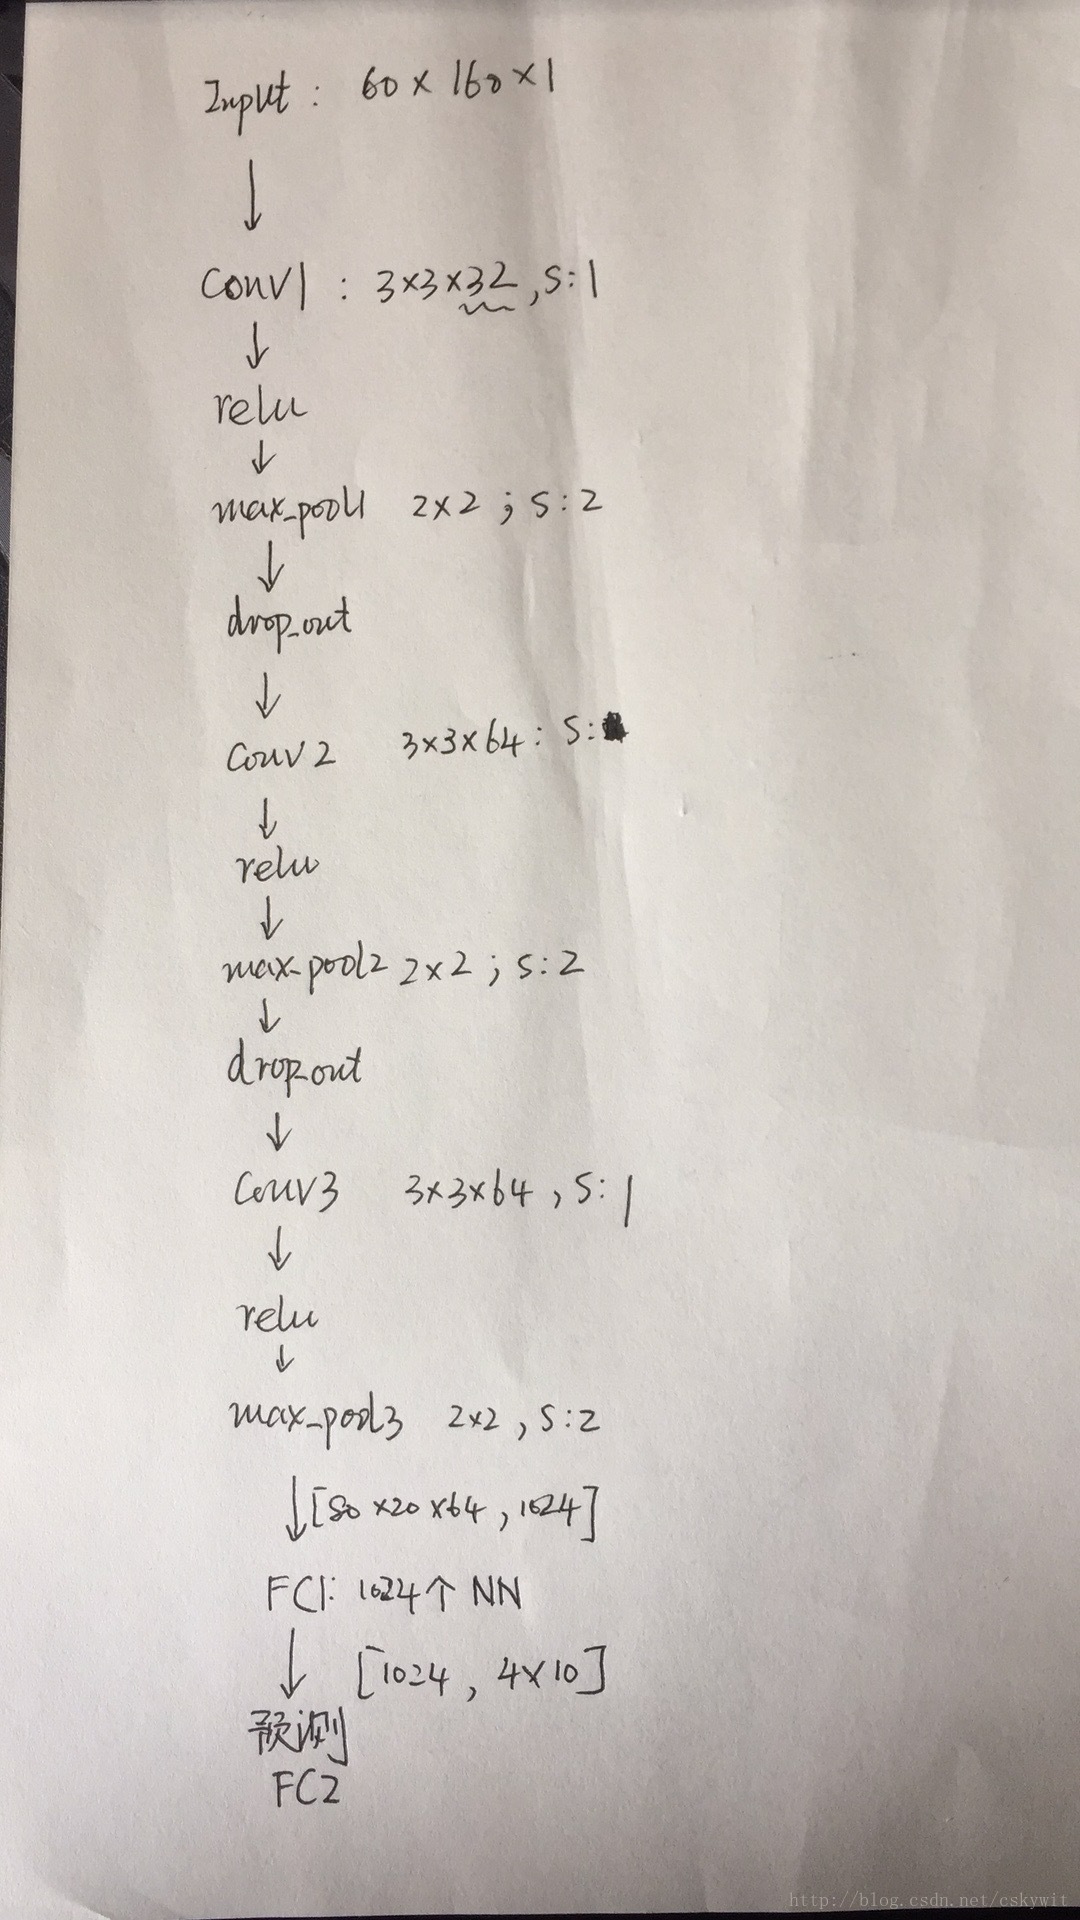 Input : 60 × 160 × 1
↓
conv1 : 3×3×32 , S:1
↓
relu
↓
max_pool1 2×2 ; S:2
↓
drop_out
↓
conv2 3×3×64 : S:
↓
relu
↓
max_pool2 2×2 ; S:2
↓
drop_out
↓
conv3 3×3×64 , S:1
↓
relu
↓
max_pool3 2×2 , S:2
↓ [80×20×64 , 1024]
FC1: 1024个 NN
↓ [1024 , 4×10]
预测
FC2
http://blog.csdn.net/cskywit